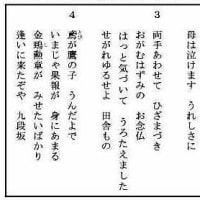 母は泣けます うれしさに
3
両手あわせて ひざまづき
おがむはずみの お念仏
はっと気づいて うろたえました
せがれゆるせよ 田舎もの
4
鳶が鷹の子 うんだよで
いまじゃ果報が 身にあまる
金鵄勲章が みせたいばかり
逢いに来たぞや 九段坂